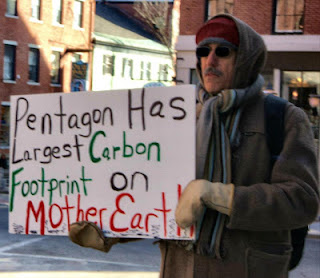 Pentagon Has
Largest Carbon
Footprint on
Mother Earth